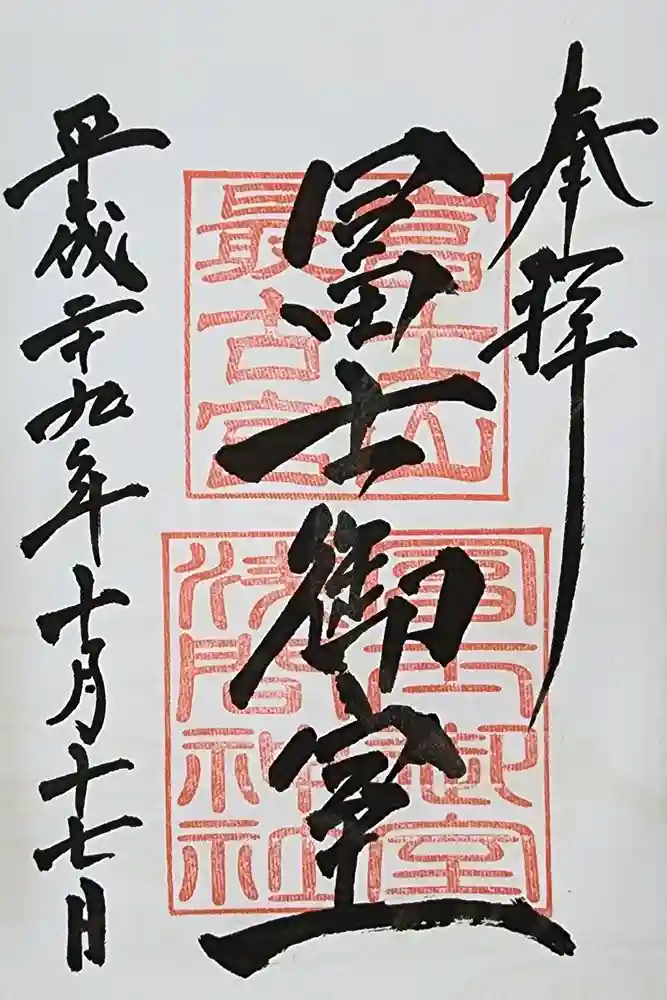 奉拝
冨士御室
平成二十九年十月十七日
富士山
最古宮
冨士御室
浅間神社